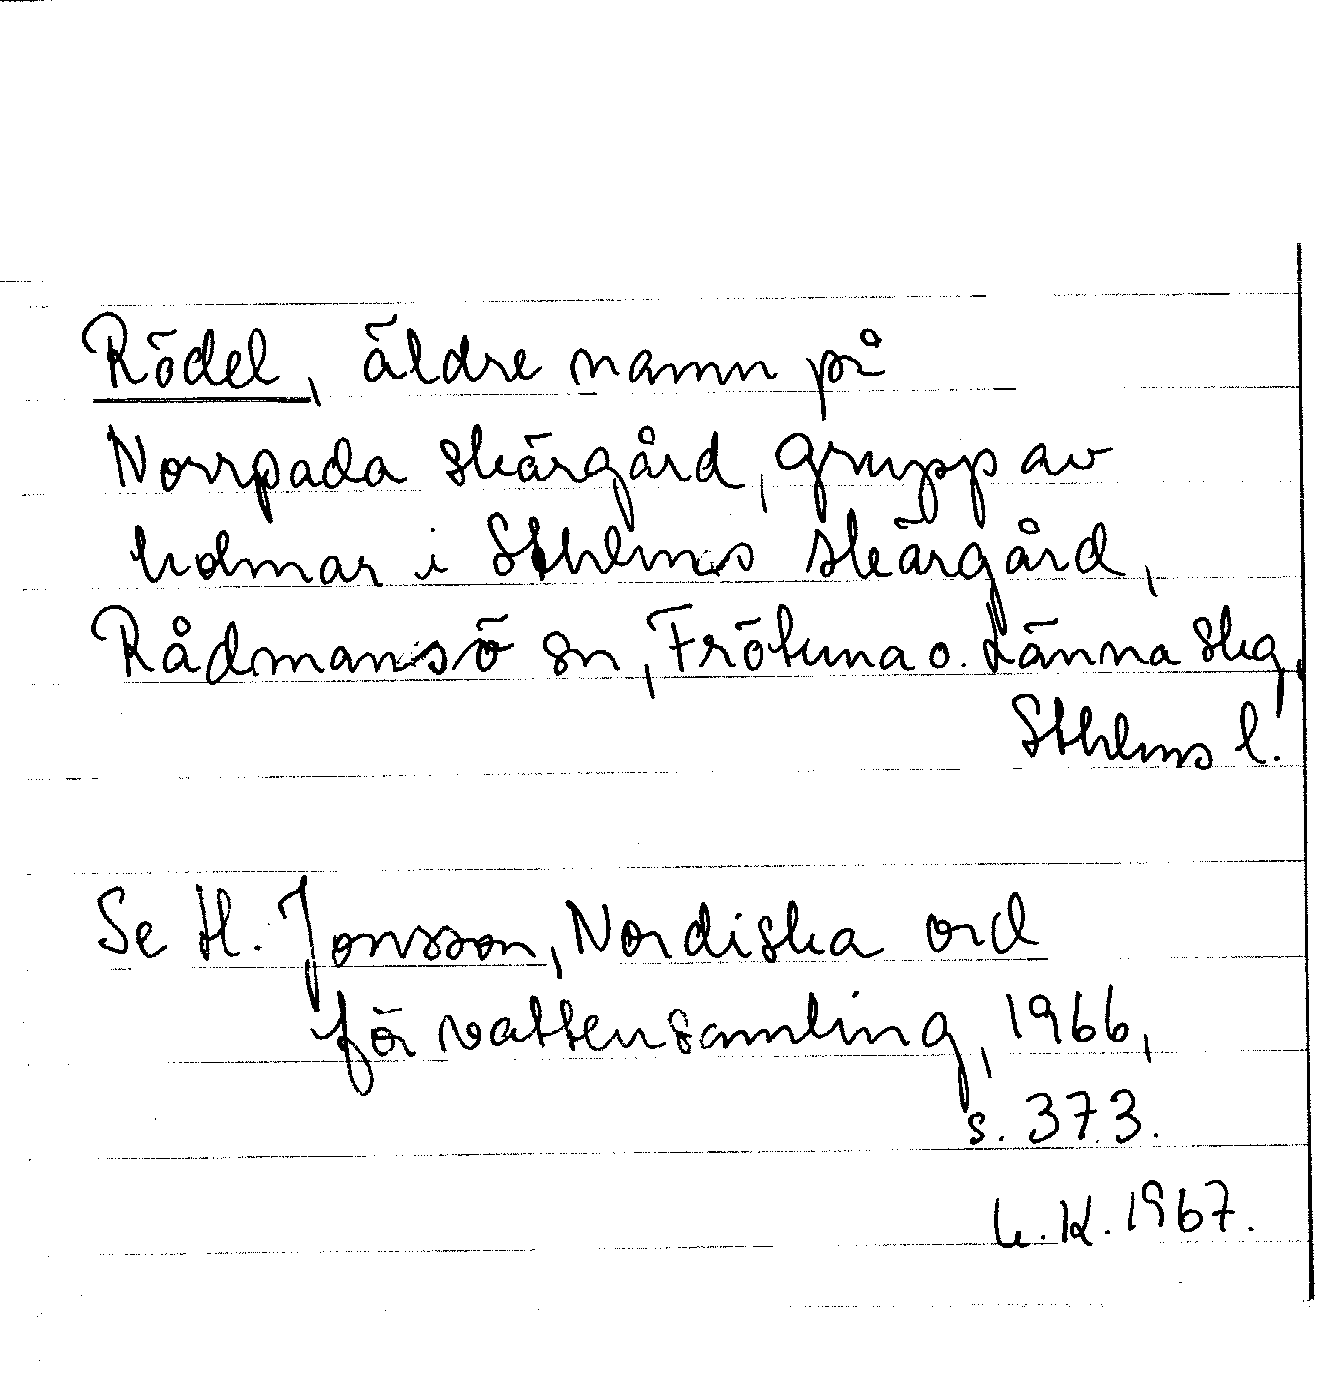 Rödel, äldre namn på
Norrpada skärgård, grupp av
holmar i Sthlms skärgård,
Rådmansö sn, Frötuna o. Länna skg,
Sthlms l.
Se H. Jonsson, Nordiska ord
för vattensamling, 1966,
s. 373.
K. 1967.